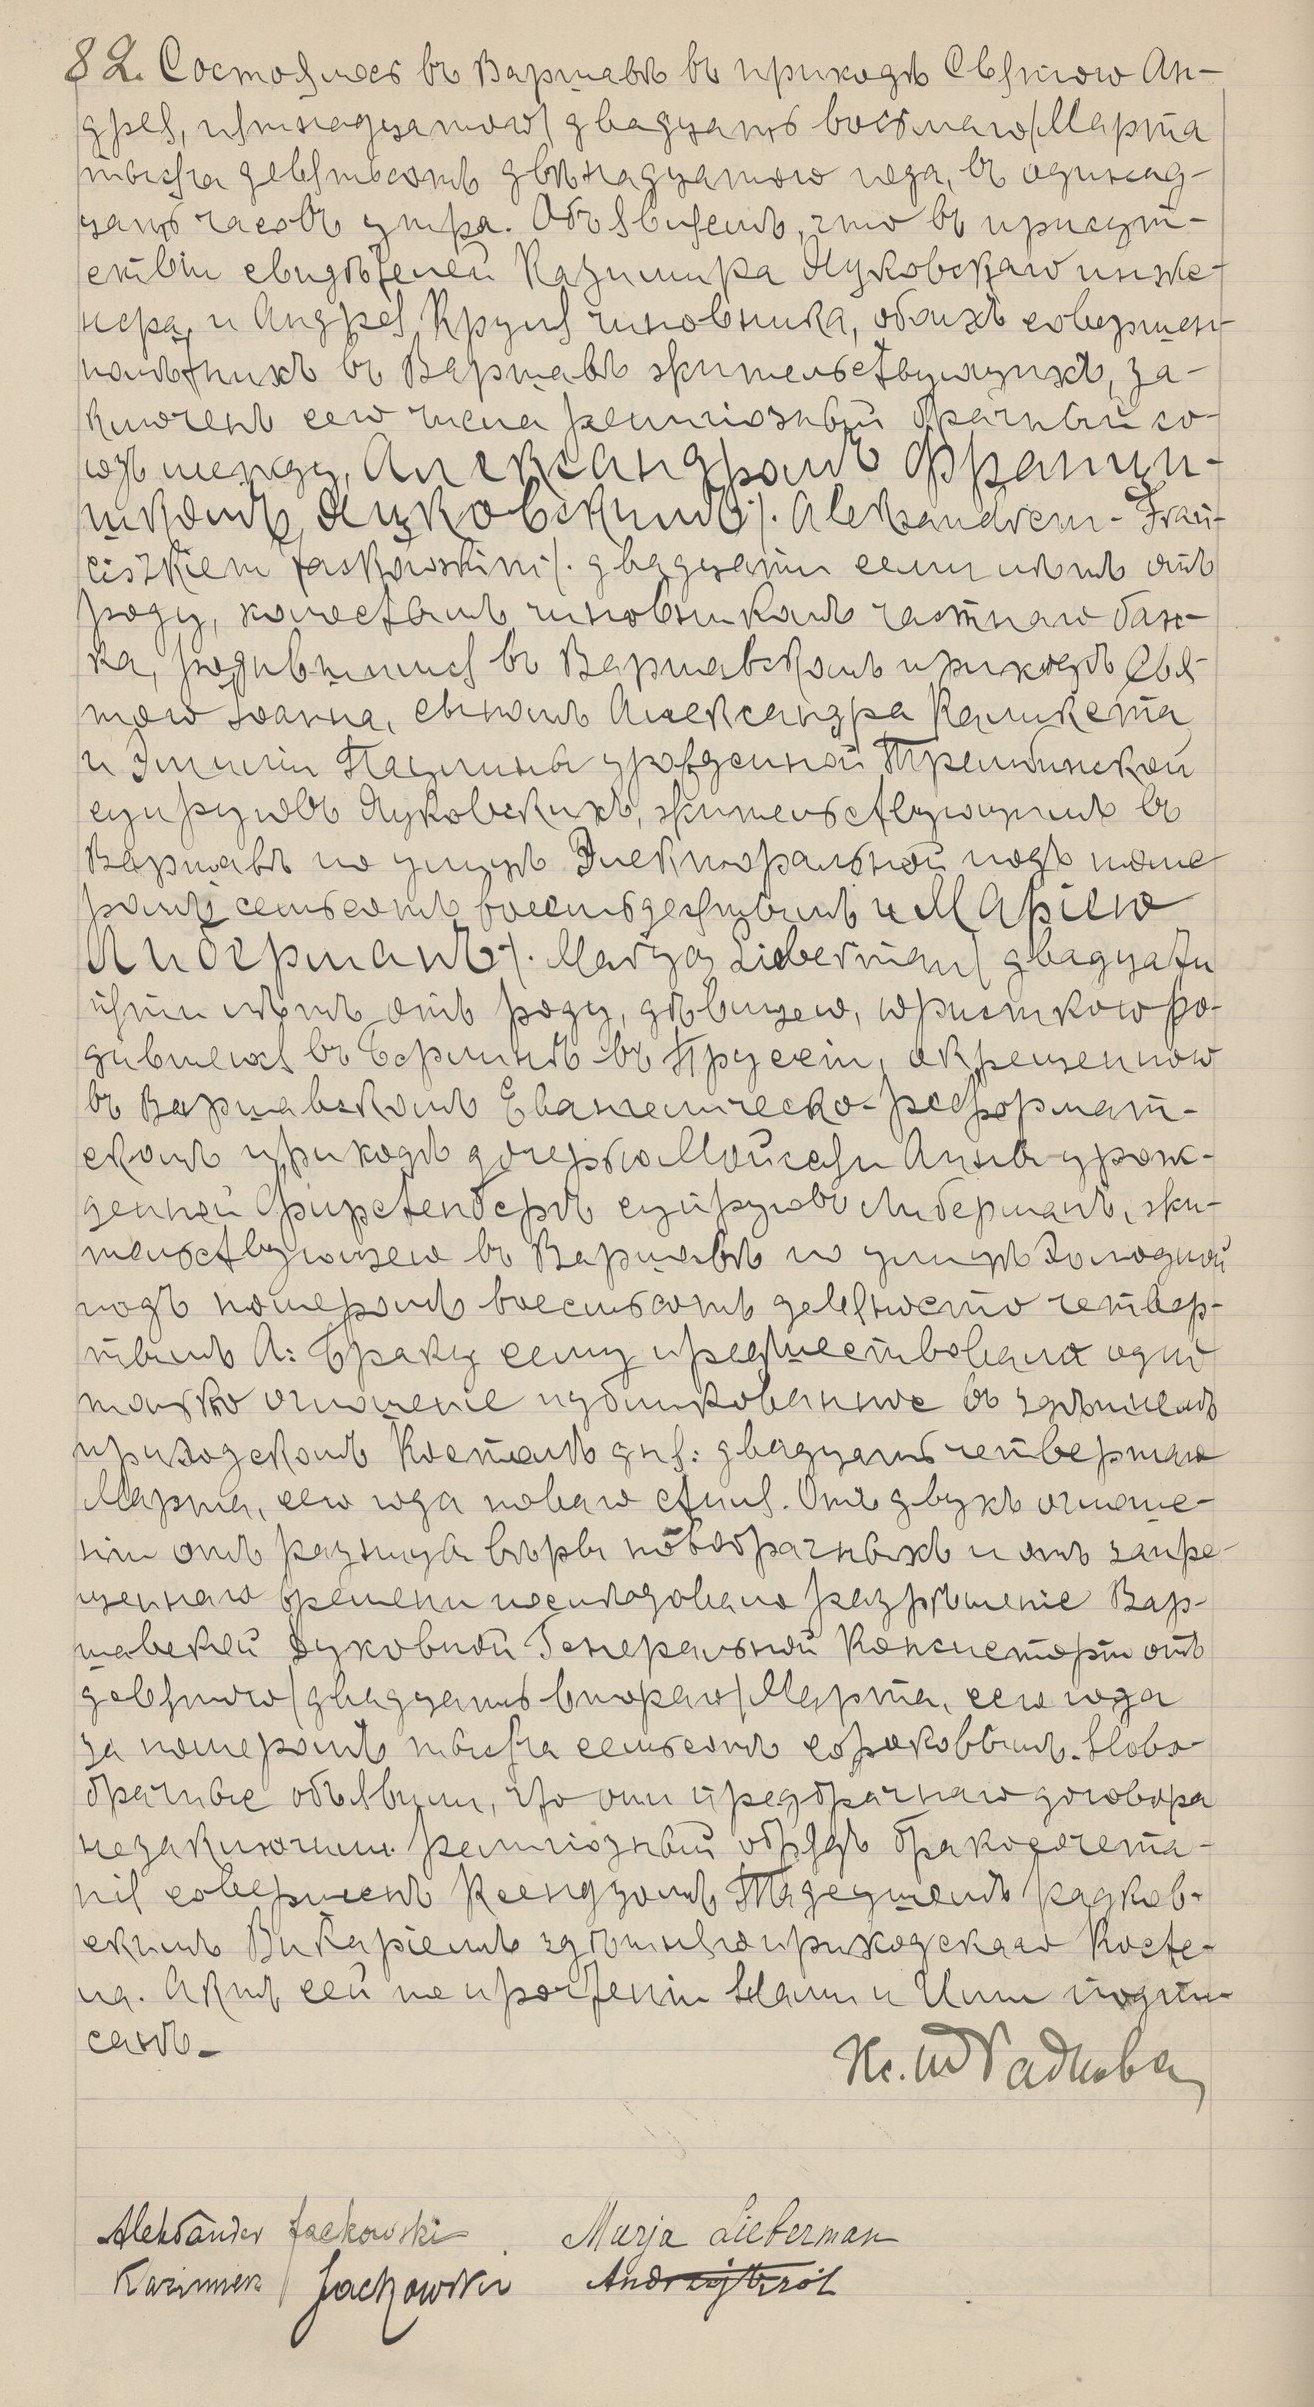 82. Состоялось въ Варшавѣ въ приходѣ Святого Ан-
дрея, пятнадцатого/двадцать восьмаго/Марта
тысяча девятьсотъ двѣнадцатого года, въ одинад-
цать часовъ утра. Объявляемъ, что въ присут-
ствіи свидѣтелей Казимира Яцковскаго инже-
нера, и Андрея Круля чиновника, обоихъ совершен-
нолѣтнихъ въ Варшавѣ жительствующихъ, за-
ключенъ сего числа религіозный брачный со-
юзъ между, Александромъ Францу-
шкомъ, Яцковскимъ/. Aleksandrem-Fran-
ciszkiem Jackowskim/. двадцати семи лѣтъ отъ
роду, холостымъ чиновникомъ частнаго бан-
ка, родившимся въ Варшавскомъ приходѣ Свя-
того Іоанна, сыномъ Александра Каликста
и Эмиліи Паулины урожденной Трембинской
супруговъ Яцковскихъ, жительствующимъ въ
Варшавѣ по улицѣ Электоральной подъ номе
ромъ семьсотъ восемьдесятымъ и Маріею
Либерманъ/. Maryą Lieberman/ двадцати
пяти лѣтъ отъ роду, дѣвицею, юристкою ро-
дившеюся въ Берлинѣ въ Пруссіи, окрещенною
въ Варшавскомъ Евангелическо-реформат-
скомъ приходѣ дочерью Мойсея и Анны урож-
денной Фирстенбергъ супруговъ Либерманъ, жи-
тельствующею въ Варшавѣ по улицѣ Холодной
подъ номеромъ восемьсотъ девяносто четвер-
тымъ А: Браку сему предшествовало одно
только оглашеніе публикованное въ здѣшнемъ
приходскомъ Костелѣ дня: двадцать четвертаго
Марта, сего года новаго стиля. Отъ двухъ оглаше-
ніи отъ разницы вѣры новобрачныхъ и отъ запре-
щеннаго времени послѣдовало разрѣшеніе Вар-
шавской Духовной Генеральной Консисторіи отъ
девятого/двадцать втораго/Марта, сего года
за номеромъ тысяча семьсотъ сороковымъ. Ново-
брачные объявили, что они предбрачнаго договора
незаключили. религіозный обрядъ бракосочета-
нія совершенъ Ксендзомъ Тадеушемъ Радков-
скимъ Викаріемъ здѣшняго приходскаго Косте-
ла. Актъ сей по прочтеніи Нами и Ими подпи-
санъ.
Кс. Радкова
Aleksander Jackowski Marja Lieberman
Kazimierz Jackowski Andrzej Król